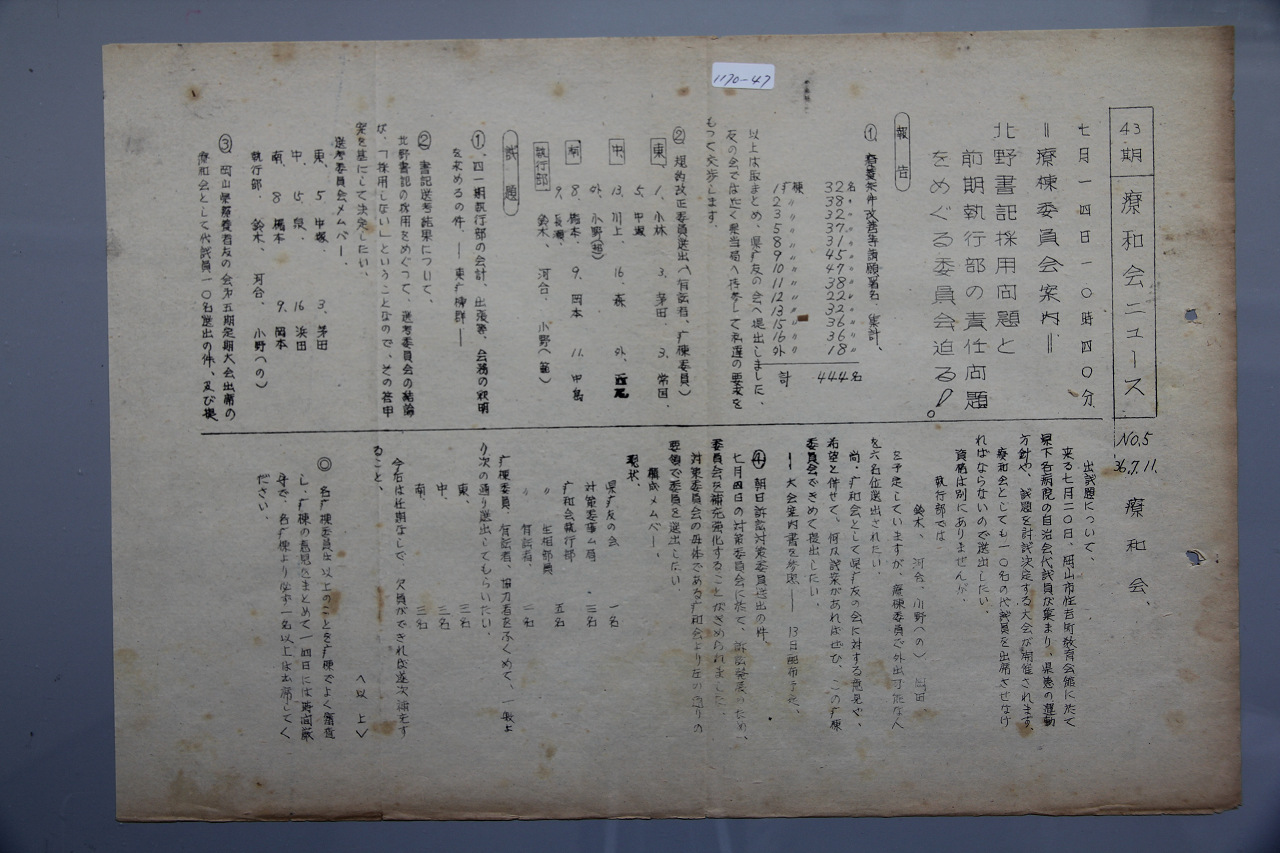 1170-47
43期 療和会ニュース
No.5
36.7.11.
療和会、
七月一四日一〇時四〇分
=療棟委員会案内=
北野書記採用问題と
前期執行部の責任问題
をめぐる委員会迫る!。
報告
① 療養条件改善等請願署名、集計、
1疒棟 32名
2〃 38〃
3〃 32〃
5〃 37〃
8〃 31〃
9〃 45〃
10〃 47〃
11〃 38〃
12〃 22〃
13〃 32〃
15〃 36〃
16〃 36〃
外〃 18〃
計 444名
以上は取まとめ、県疒友の会へ提出しました、
友の会では近く県当局へ持参して私達の要求を
もって交渉します、
② 規約改正委員選出(有志者、疒棟委員)
東、 1、小林、 3、茅田、 3、常国、
5、中塚
中、 13、川上、 16、森、 外、西尾
外、小野(超)
南 8、橋本、 9、岡本 11、中島
9、長瀬、
執行部 鈴木、 河合、 小野へ(笛)
試題
①、四一期執行部の会計、出張等、会務の釈明
を求めるの件、——東疒棟群——
② 書記送考結果について、
北野書記の採用をめぐって、送考委員会の結論
が、「採用しない」ということなので、その答申
案を基にして決定したい、
送考委員会メムバー、
東、 5、中塚、 3、茅田
中、 15、泉、 16 浜田
南、 8 橋本 9、岡本
執行部、鈴木、 河合、 小野へ(の)
③ 岡山県療養者友の会第五期定期大会出席の
療和会として代試員一〇名送出の件、及び提
出試題について、
来る七月二〇日、岡山市住吉町教育会館に於て
県下各病院の自治会代試員が集まり、県患の運動
方針や、試題を討試決定する大会が開催されます、
療和会としても一〇名の代試員を出席させなけ
ればならないので送出したい、
資格は別にありませんが、
執行部では
鈴木、 河合、小野へ(の)
を予定していますが、療棟委員で外出可能な人
を六名位送出されたい、
尚・疒和会として県疒友の会に対する意見や、
希望と併せて、何か試案があればぜひ、この疒棟
委員会できめて提出したい、
——大会案内書を参照——13日配布予定、
④ 朝日訴訟対策委員送出の件、
七月四日の対策委員会に於て、訴訟発展のため、
委員会を補充強化することがきめられました、
対策委員会の母体である疒和会より左の通りの
要領で委員を選出したい
構成メムバー、
現状、
県疒友の会 一名
対策委事ム局・三名
疒和会執行部 五名
〃 生組部員
〃 有志者、 二名
疒棟委員、有志者、協力者をふくめて、一般よ
り次の通り送出してもらいたい、
東、 三名
中、 三名
南、 三名
今后は任期なしで、欠員ができれば逐次補充す
ること、
へ以上〉
◎ 各疒棟委員は以上のことを疒棟でよく審査
し、疒棟の意見をまとめて一四日には時间厳
守で、各疒棟より必ず一名以上は出席してく
ださい、